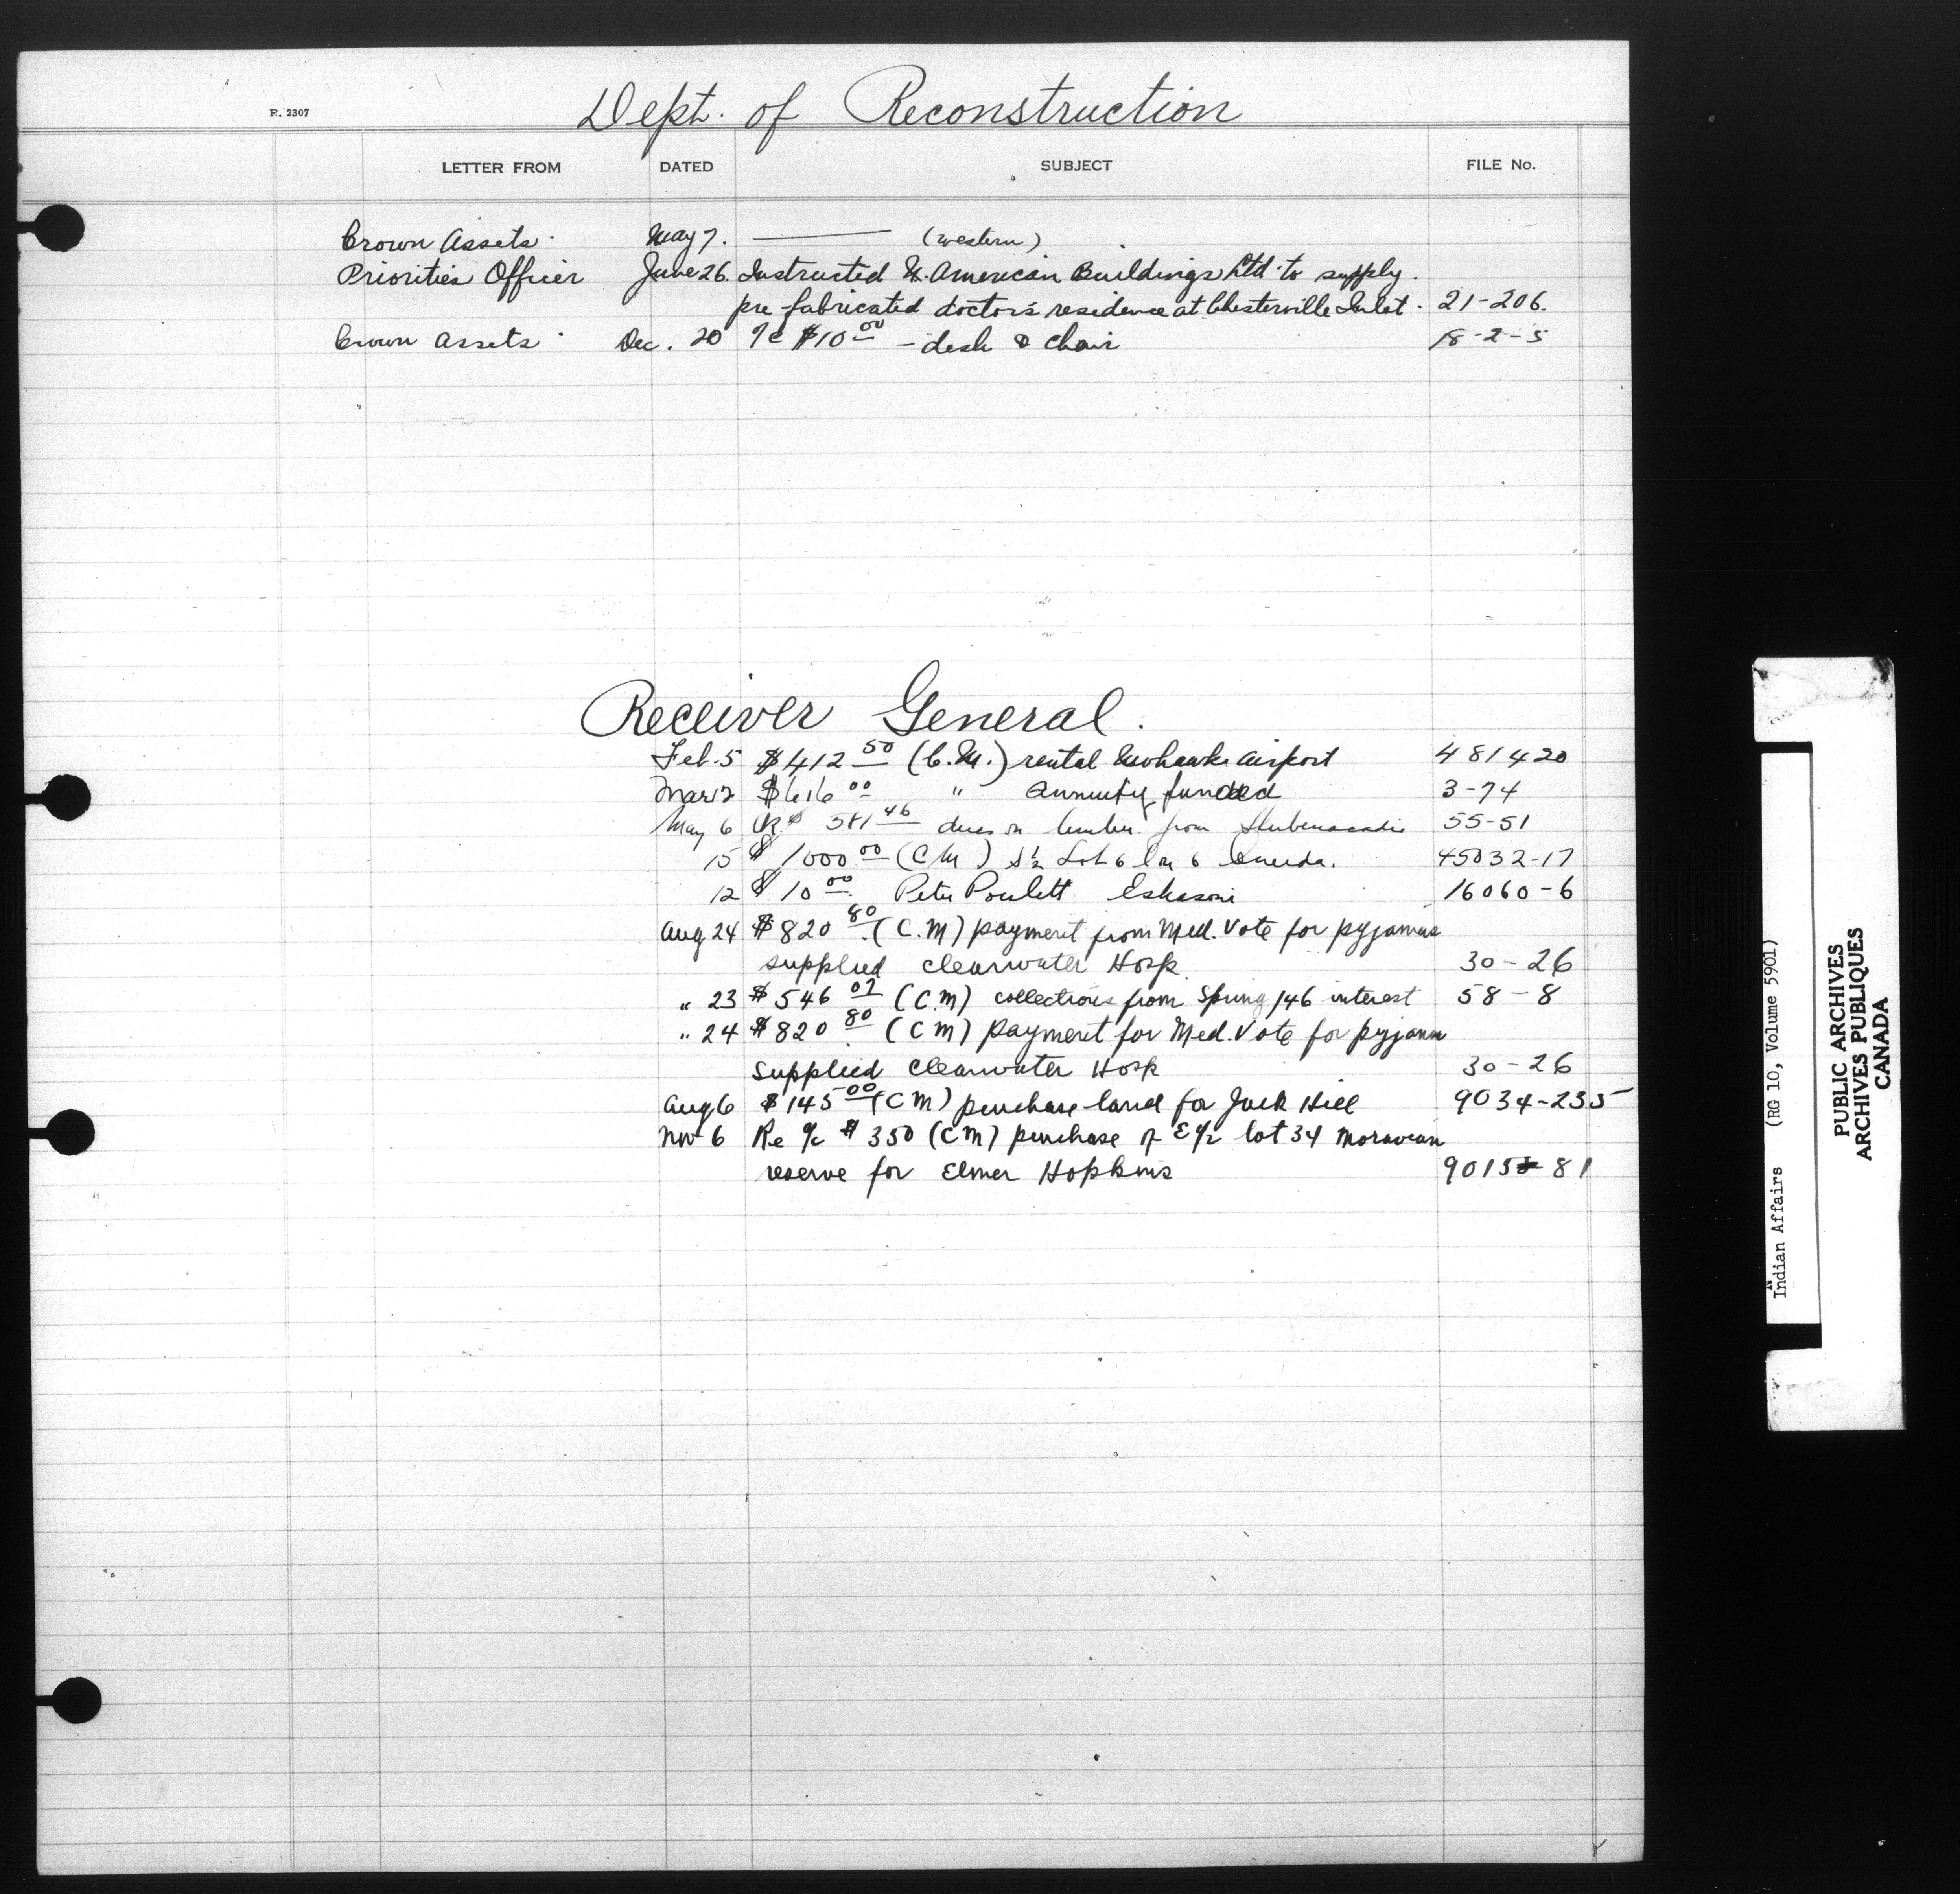 R. 2307
Dept. of Reconstruction
LETTER FROM DATED SUBJECT FILE No.
Crown Assets. May 7. ——— (western)
Priorities Officer June 26. Instructed N. American Buildings Ltd. to supply
pre-fabricated doctor's residence at Chesterville Inlet. 21-206.
Crown Assets Dec. 20 $10 00 - desk & chair 18-2-5
Receiver General.
Feb. 5 $412 50 (C.M.) rental Mohawk Airport 481420
Mar 12 $616 00 " Annuity funded 3-74
May 6 Ck $ 381 46 dues on lumber from Shubenacadie 55-51
15 $ 1000 00 (CM) S½ Lot 6 Con 6 Oneida. 45032-17
12 $ 10 00 Peter Poulett Eskasoni 16060-6
Aug 24 $820 80 (C.M) payment from Med. Vote for pyjamas
supplied Clearwater Hosp. 30-26
" 23 $546 07 (C.M) collections from Spring /46 interest 58-8
" 24 $820 80 (CM) payment for Med. Vote for pyjama
supplied Clearwater Hosp 30-26
Aug 6 $145 00 (CM) purchase land for Jack Hill 9034-235
Nov 6 Re c/c $350 (CM) purchase of E½ lot 34 Moravian
reserve for Elmer Hopkins 9015-81
Indian Affairs (RG 10, Volume 5901)
PUBLIC ARCHIVES
ARCHIVES PUBLIQUES
CANADA